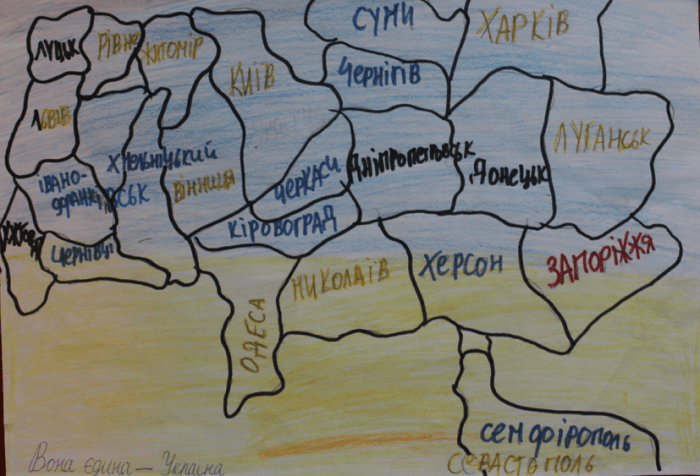 СУМИ
ХАРКІВ
ЛУЦЬК
РІВНЕ
ЖИТОМІР
КИЇВ
ЧЕРНІГІВ
ЛЬВІВ
ЛУГАНСЬК
ХМЕЛЬНІЦЬКИЙ
ДНІПРОПЕТРОВСЬК
ДОНЕЦЬК
ІВАНО-
ФРАНКІВСЬК
ВІННИЦЯ
ЧЕРКАСИ
КІРОВОГРАД
ЧЕРНІВЦІ
НИКОЛАЇВ
ХЕРСОН
ЗАПОРІЖЖЯ
ОДЕСА
СЕМФІРОПОЛЬ
СЕВАСТОПОЛЬ
Вона єдина — Україна